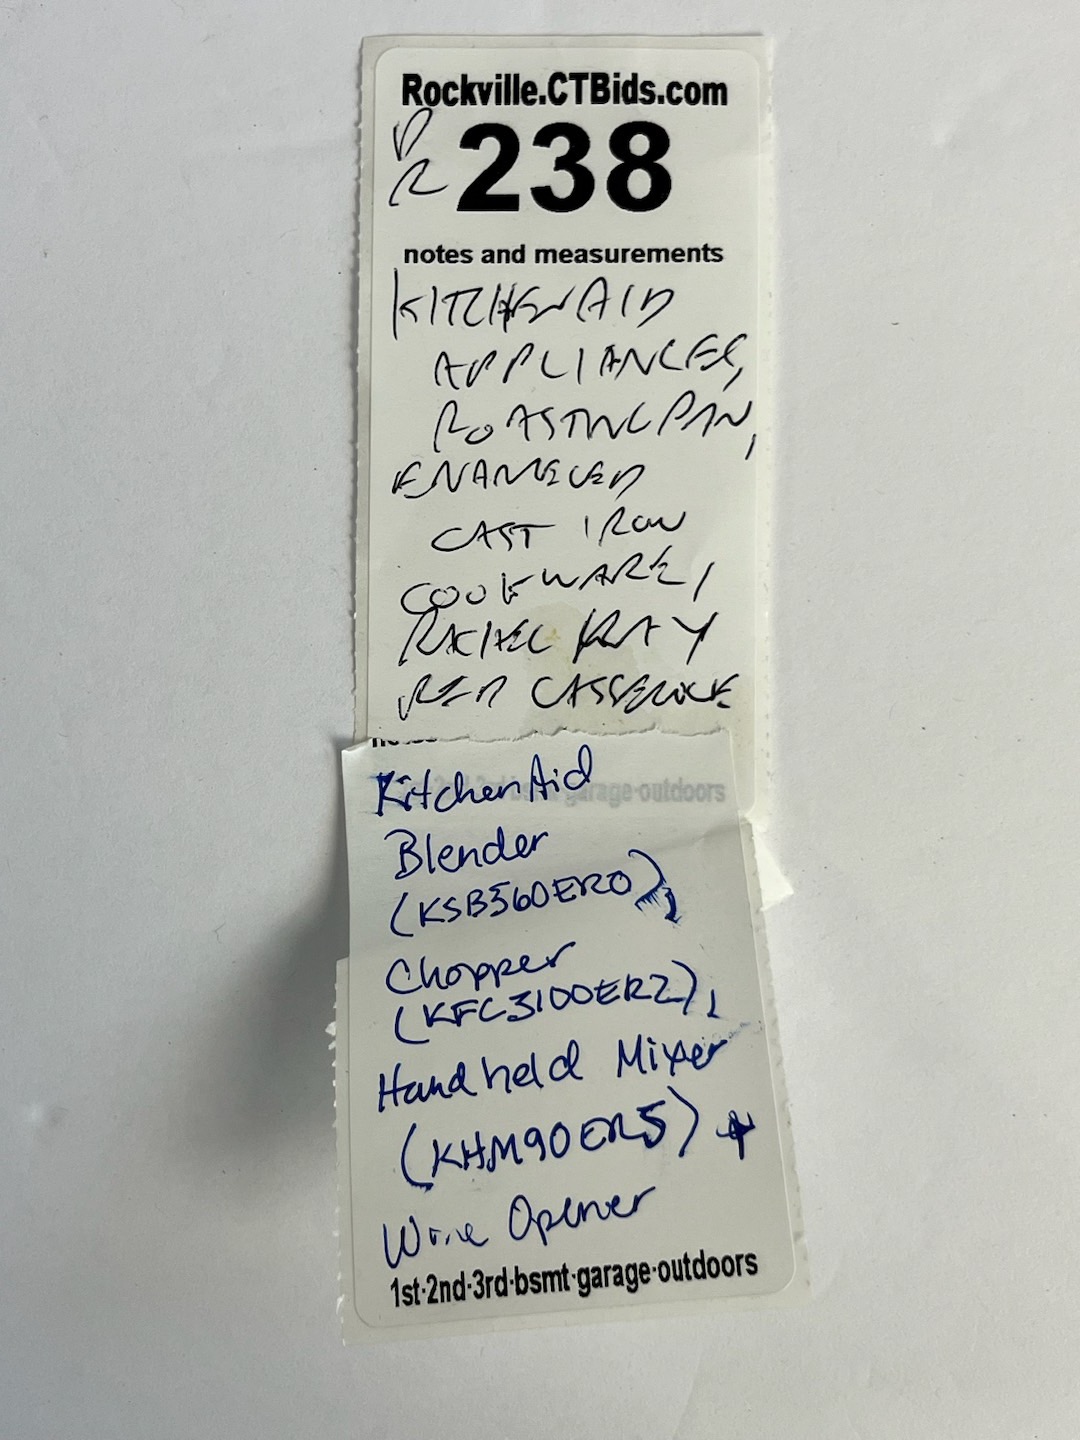 Rockville.CTBids.com
DR
238
notes and measurements
KITCHENAID
APPLIANCES,
ROASTING PAN,
ENAMELED
CAST IRON
COOKWARE,
RACHEL RAY
RED CASSEROLE
KitchenAid
garage·outdoors
Blender
(KSB560ER0),
Chopper
(KFC3100ER2),
Handheld Mixer
(KHM90ER5) +
Wine Opener
1st·2nd·3rd·bsmt·garage·outdoors